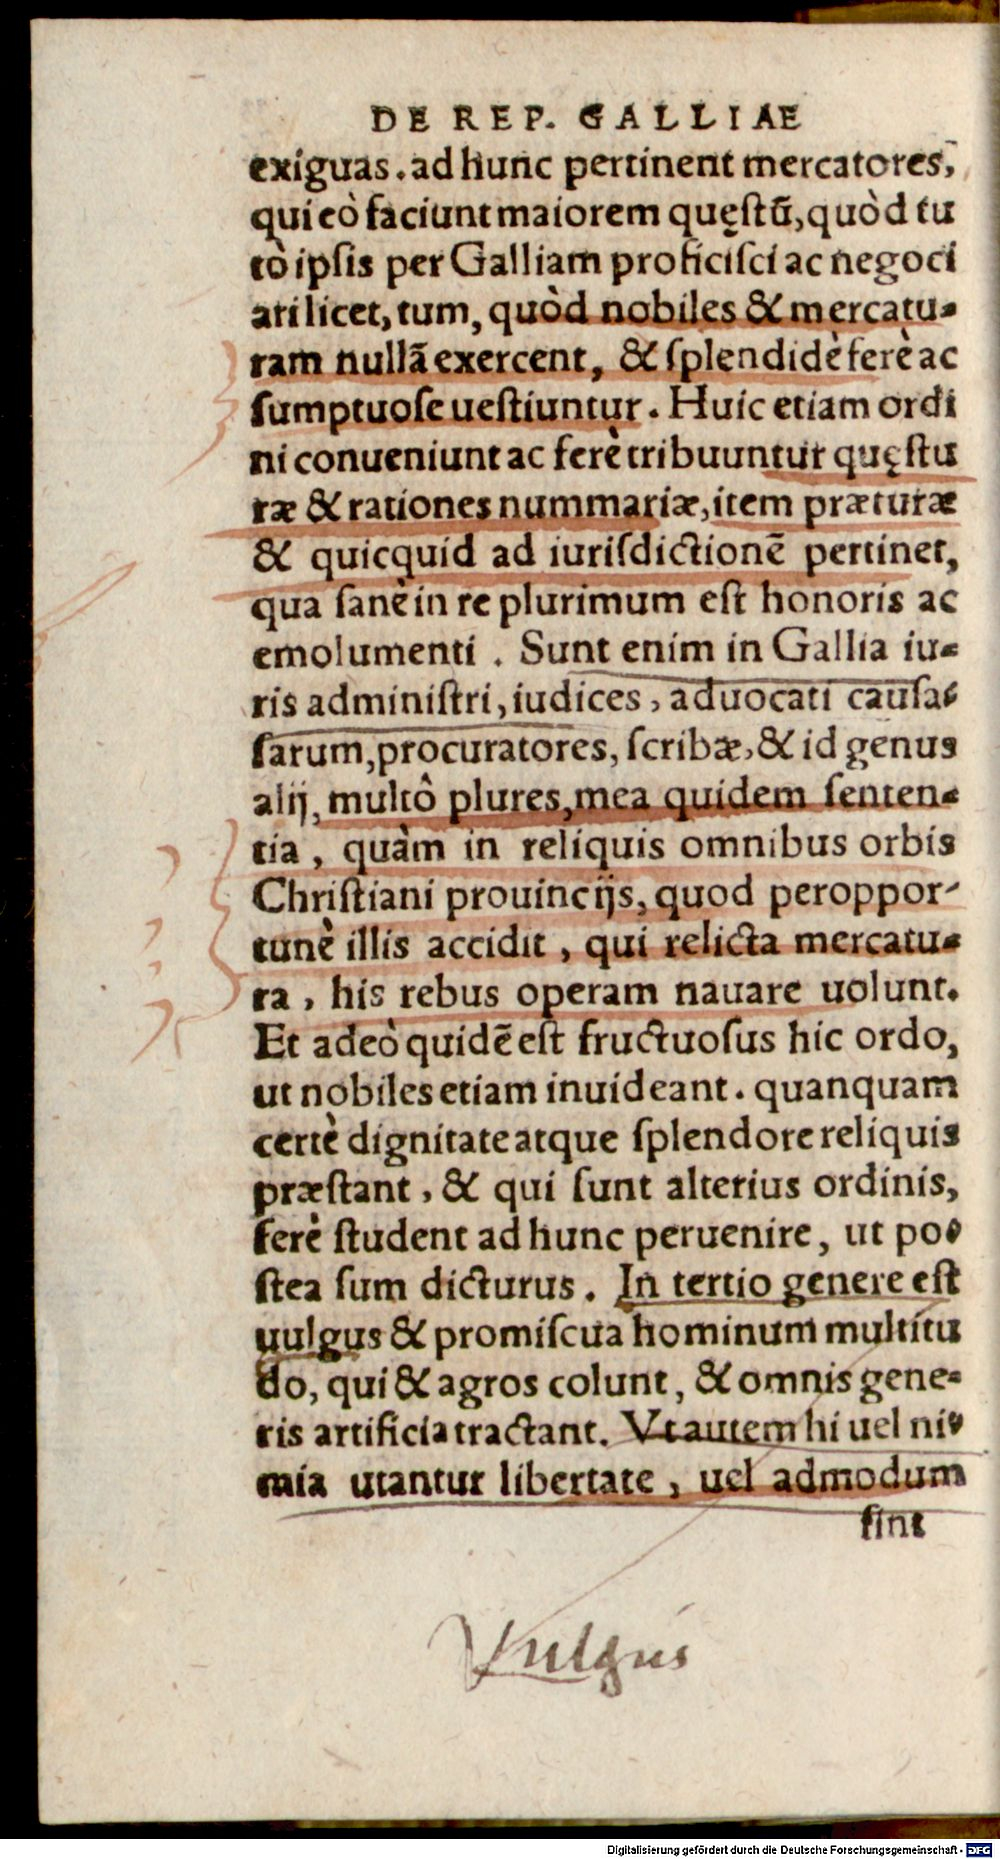 DE REP. GALLIAE
exiguas. ad hunc pertinent mercatores,
qui eò faciunt maiorem quęstū, quòd tu
tò ipsis per Galliam proficisci ac negoci
ari licet, tum, quòd nobiles & mercatu-
ram nullã exercent, & splendidè ferè ac
sumptuose uestiuntur. Huic etiam ordi
ni conueniunt ac ferè tribuuntur quęstu
ræ & rationes nummariæ, item præturæ
& quicquid ad iurisdictionē pertinet,
qua sanè in re plurimum est honoris ac
emolumenti. Sunt enim in Gallia iu-
ris administri, iudices, aduocati causa-
sarum, procuratores, scribæ, & id genus
alij, multô plures, mea quidem senten-
tia, quàm in reliquis omnibus orbis
Christiani prouincijs, quod peroppor-
tunè illis accidit, qui relicta mercatu-
ra, his rebus operam nauare uolunt.
Et adeò quidē est fructuosus hic ordo,
ut nobiles etiam inuideant. quanquam
certè dignitate atque splendore reliquis
præstant, & qui sunt alterius ordinis,
ferè student ad hunc peruenire, ut po-
stea sum dicturus. In tertio genere est
uulgus & promiscua hominum multitu
do, qui & agros colunt, & omnis gene-
ris artificia tractant. Vt autem hi uel ni-
mia utantur libertate, uel admodum
sint
Vulgus
Digitalisierung gefördert durch die Deutsche Forschungsgemeinschaft - DFG